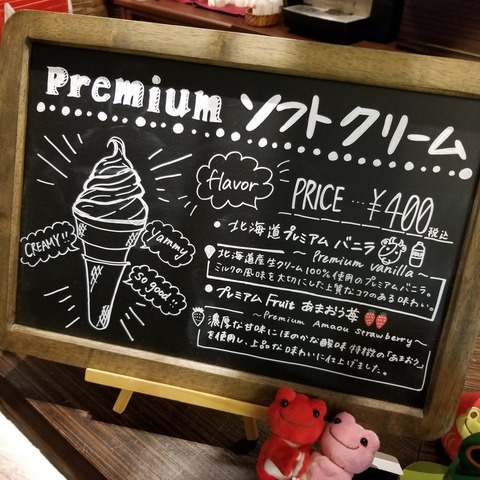 Premium ソフトクリーム
flavor
PRICE…¥400税込
CREAMY!!
Yammy
So good!!
・北海道プレミアムバニラ
~ Premium vanilla ~
北海道産生クリーム100%使用のプレミアムバニラ。
ミルクの風味を大切にした上質なコクのある味わい。
・プレミアム Fruit あまおう苺
~ Premium Amaou strawberry ~
濃厚な甘味にほのかな酸味 特徴の「あまおう」
を使用し、上品な味わいに仕上げました。